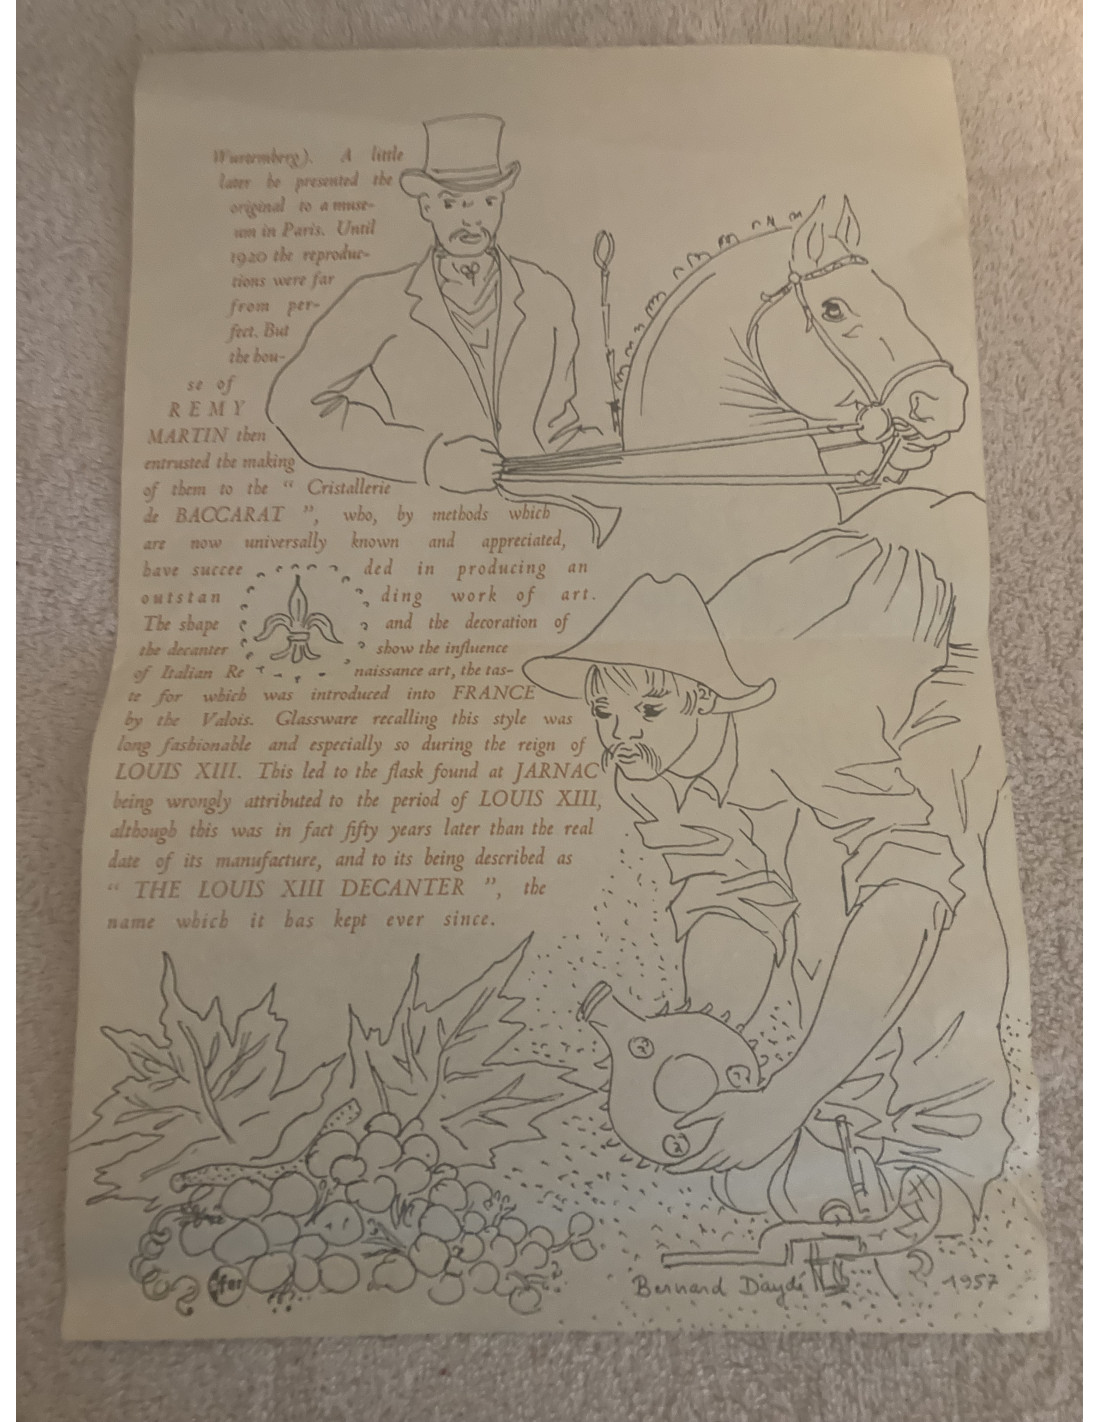 Wurtemberg). A little
later he presented the
original to a muse-
um in Paris. Until
1920 the reproduc-
tions were far
from per-
fect. But
the hou-
se of
REMY
MARTIN then
entrusted the making
of them to the “ Cristallerie
de BACCARAT ”, who, by methods which
are now universally known and appreciated,
have succee ded in producing an
outstan ding work of art.
The shape and the decoration of
the decanter show the influence
of Italian Re naissance art, the tas-
te for which was introduced into FRANCE
by the Valois. Glassware recalling this style was
long fashionable and especially so during the reign of
LOUIS XIII. This led to the flask found at JARNAC
being wrongly attributed to the period of LOUIS XIII,
although this was in fact fifty years later than the real
date of its manufacture, and to its being described as
“ THE LOUIS XIII DECANTER ”, the
name which it has kept ever since.
Bernard Daydé 1957